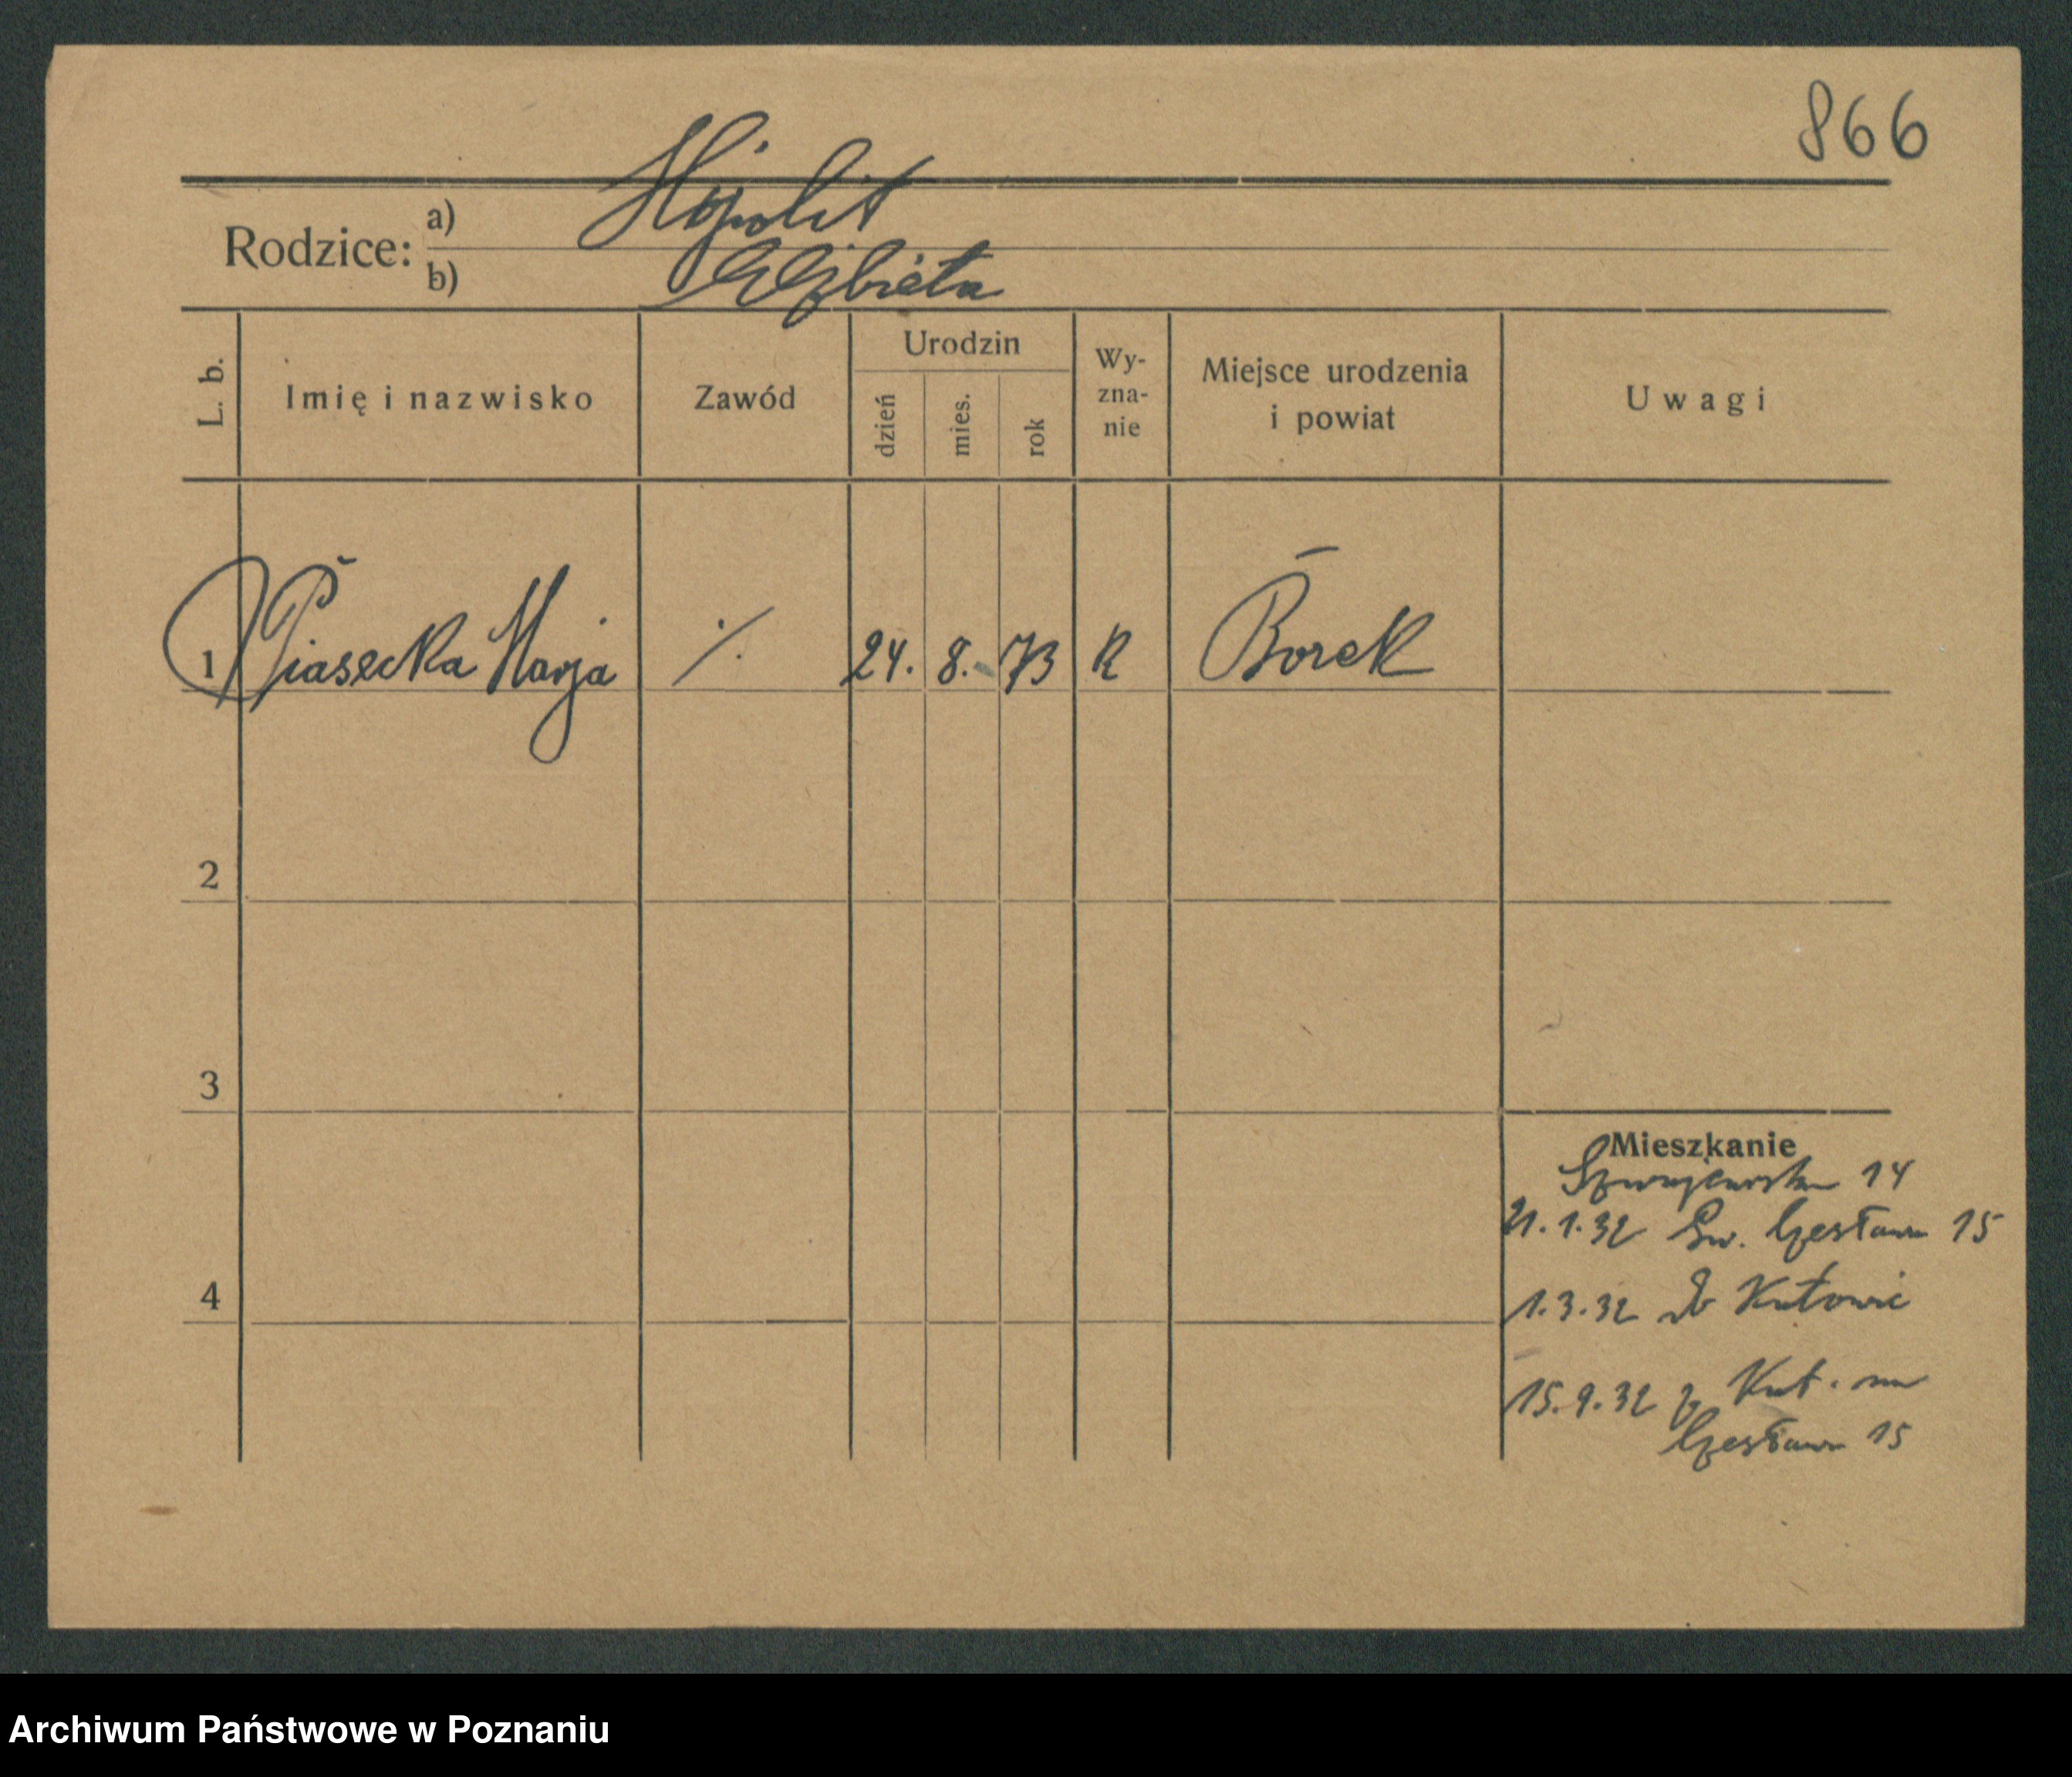 866
Rodzice: a) Hipolit
b) Elżbieta
L. b. Imię i nazwisko Zawód Urodzin dzień mies. rok Wy-zna-nie Miejsce urodzenia i powiat Uwagi
1 Piasecka Marja ./. 24. 8. 73 R Borek
2
3
Mieszkanie
14
21.1.32 Św. Czesława 15
4
1.3.32 do Katowic
15.9.32 z Kat. na
Czesława 15
Archiwum Państwowe w Poznaniu